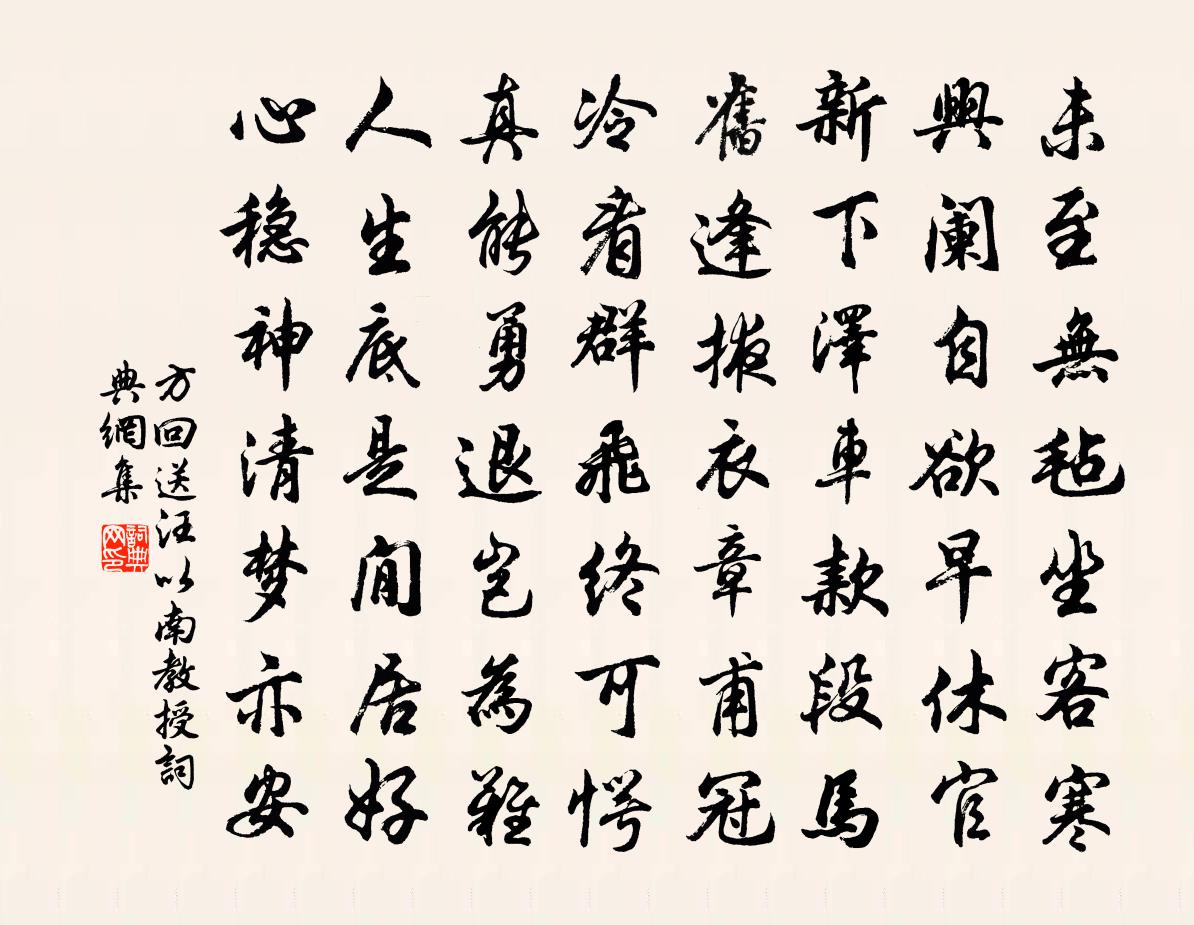 未至無毡坐客寒
興闌自欲早休官
新下澤車款段馬
舊逢掖衣章甫冠
冷看群飛終可愕
真能勇退岂為難
人生底是閒居好
心穏神清梦亦安
方回送汪以南教授詞
典網集
詞典
网印